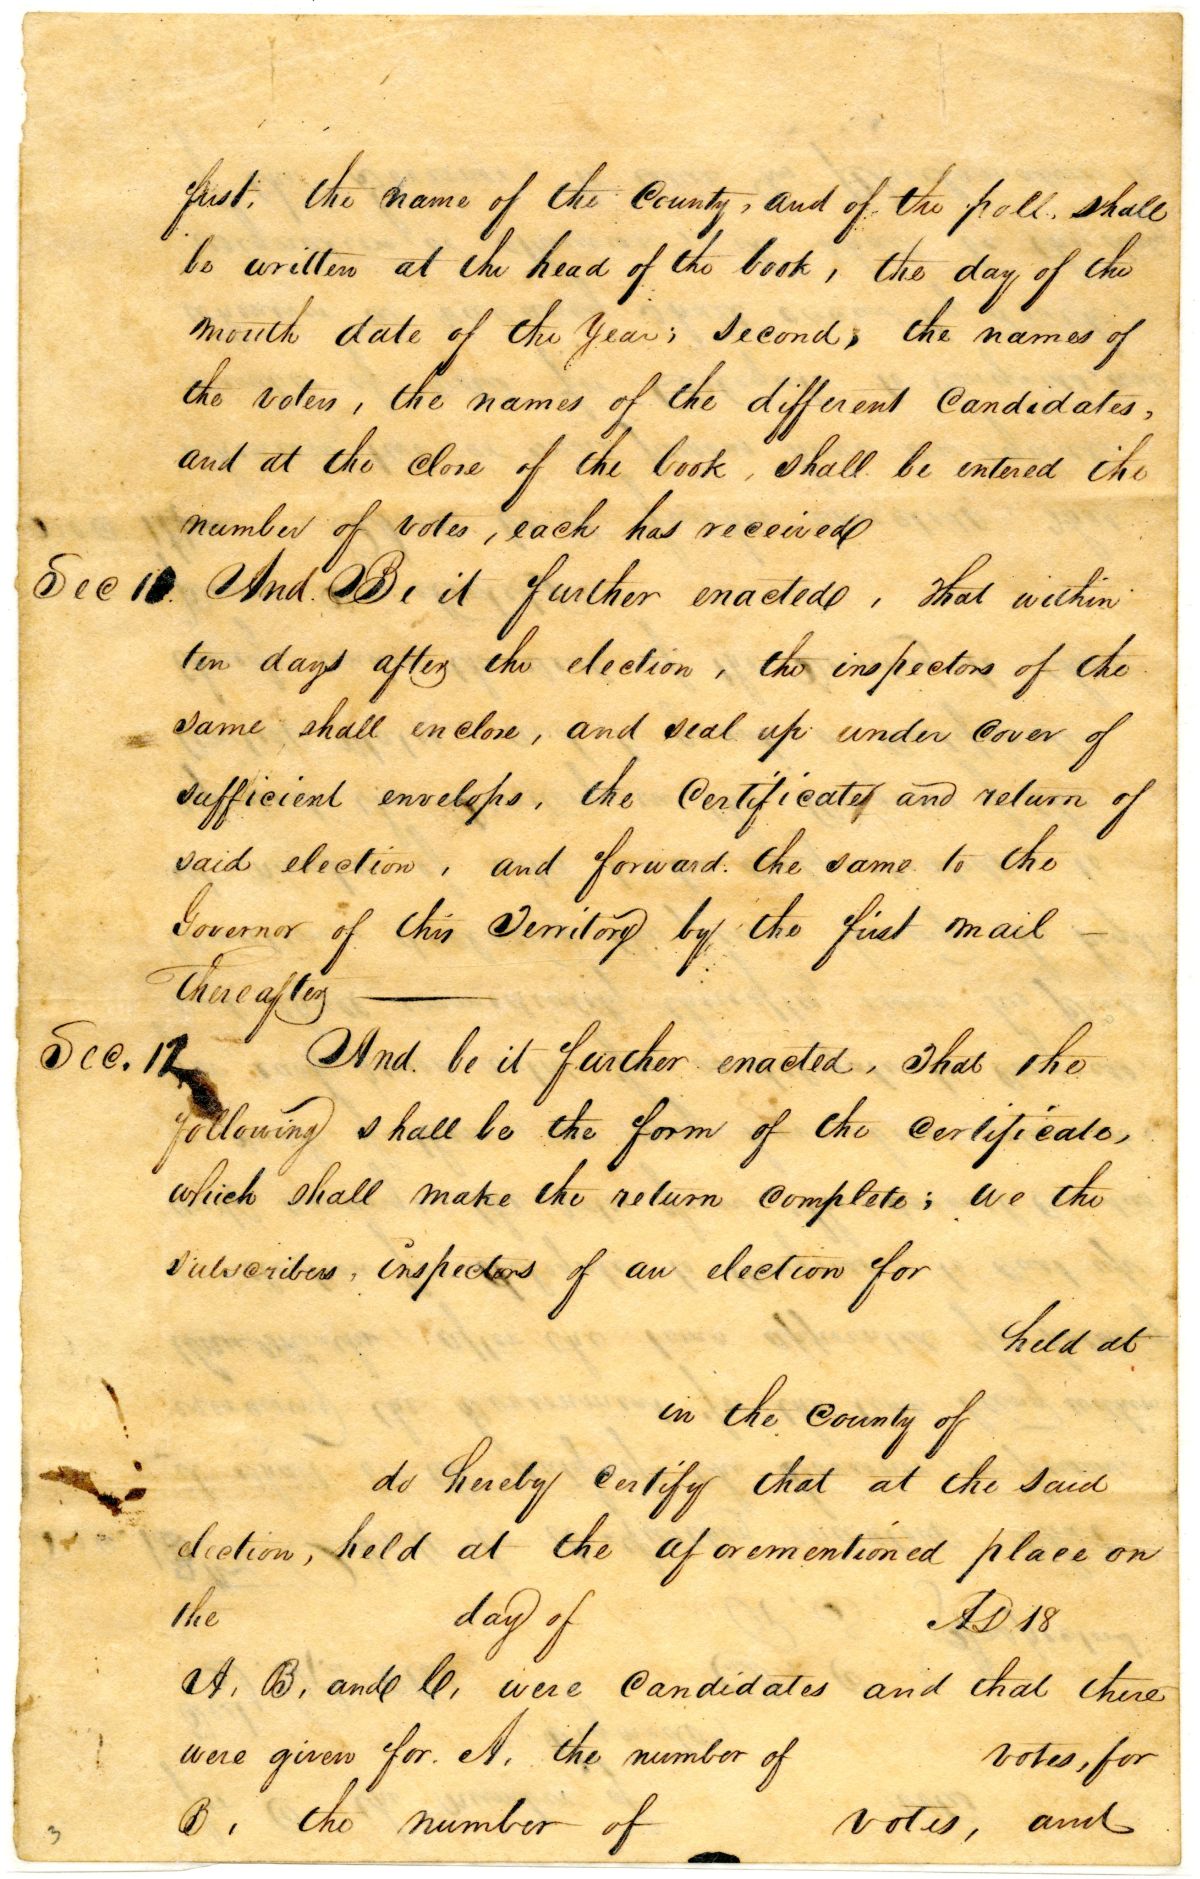 first, the name of the County, and of the poll, shall
be written at the head of the book, the day of the
month date of the Year; second, the names of
the voters, the names of the different Candidates,
and at the close of the book, shall be entered the
number of votes, each has received
Sec 11. And Be it further enacted, that within
ten days after the election, the inspectors of the
same shall enclose, and seal up under cover of
sufficient envelops, the Certificates and return of
said election, and forward the same to the
Governor of this Territory by the first mail —
Thereafter ———
Sec. 12 And be it further enacted, That the
following shall be the form of the certificate,
which shall make the return complete; We the
subscribers, inspectors of an election for
held at
in the County of
do hereby certify that at the said
election, held at the aforementioned place on
the day of AD 18
A, B, and C, were Candidates and that there
were given for A, the number of votes, for
B, the number of votes, and
3